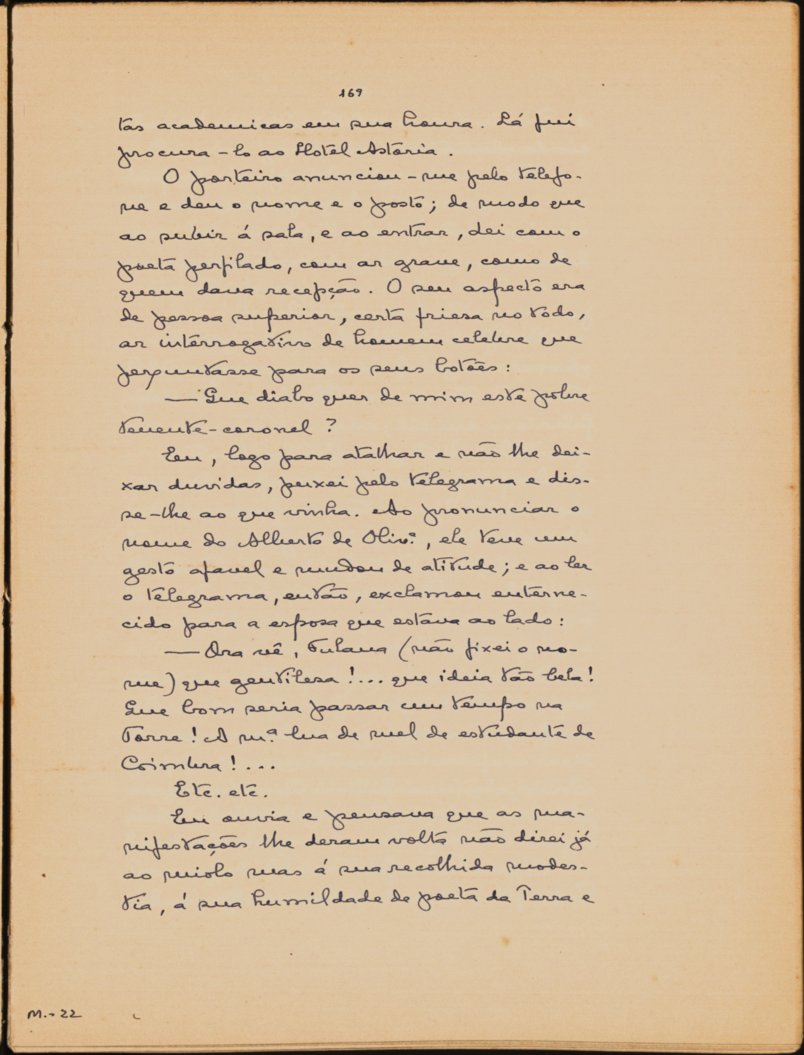 169
tas academicas em sua honra. Lá fui
procura-lo ao Hotel Astória.
O porteiro anunciou-me pelo telefo-
ne e deu o nome e o posto; de modo que
ao subir á sala, e ao entrar, dei com o
poeta perfilado, com ar grave, como de
quem dava recepção. O seu aspecto era
de pessoa superior, certa friesa no todo,
ar interrogativo de homem celebre que
perguntasse para os seus botões:
— Que diabo quer de mim este pobre
tenente-coronel?
Eu, logo para atalhar e não lhe dei-
xar duvidas, puxei pelo telegrama e dis-
se-lhe ao que vinha. Ao pronunciar o
nome do Alberto de Oliv.ª, ele teve um
gesto afavel e mudou de atitude; e ao ler
o telegrama, então, exclamou enterne-
cido para a esposa que estava ao lado:
— Ora vê, Fulana (não fixei o no-
me) que gentilesa!... que ideia tão bela!
Que bom seria passar um tempo na
Torre! A m.ª lua de mel de estudante de
Coimbra!...
Etc. etc.
Eu ouvia e pensava que as ma-
nifestações lhe deram volta não direi já
ao miolo mas á sua recolhida modes-
tia, á sua humildade de poeta da Terra e
M.-22